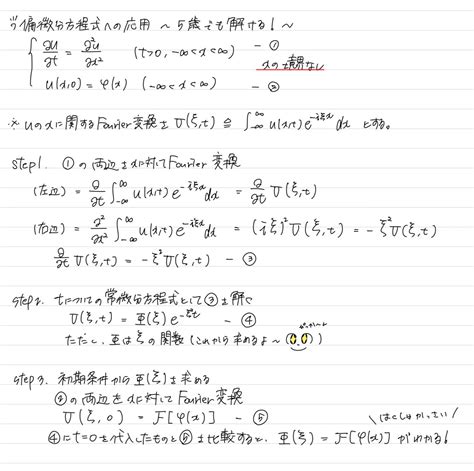 偏微分方程式への応用 ～5歳でも解ける！～
∂u/∂t = ∂²u/∂x² (t>0, -∞<x<∞) -①
xの境界なし
u(x,0) = φ(x) (-∞<x<∞) -②
※ uのxに関するFourier変換を U(ξ,t) ≜ ∫_{-∞}^{∞} u(x,t) e^{-iξx} dx とする。
step1. ①の両辺をxに対してFourier変換
(左辺) = ∂/∂t ∫_{-∞}^{∞} u(x,t) e^{-iξx} dx = ∂/∂t U(ξ,t)
(右辺) = ∂²/∂x² ∫_{-∞}^{∞} u(x,t) e^{-iξx} dx = (iξ)² U(ξ,t) = -ξ² U(ξ,t)
∂/∂t U(ξ,t) = -ξ² U(ξ,t) -③
step2. tについての常微分方程式として③を解く
U(ξ,t) = Φ(ξ) e^{-ξ²t} -④
ただし、Φはξの関数 (これから求めるよ～ )
step3. 初期条件からΦ(ξ)を求める
②の両辺をxに対してFourier変換
U(ξ,0) = F[φ(x)] -⑤
④にt=0を代入したものと⑤を比較すると、Φ(ξ) = F[φ(x)] がわかる！